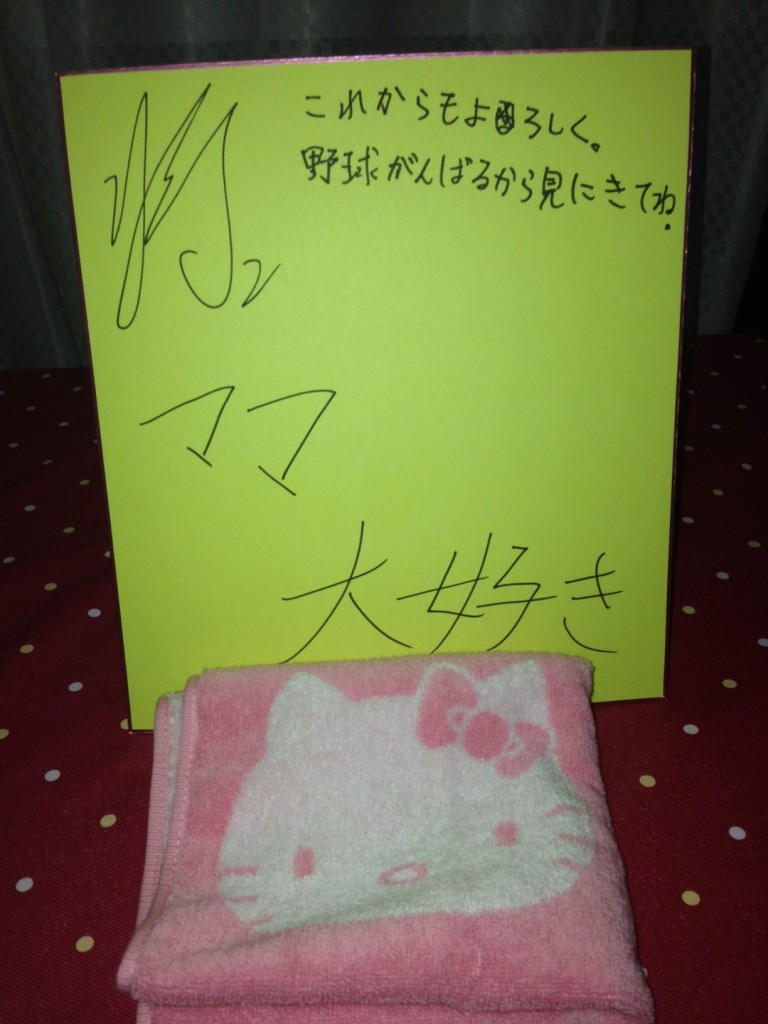 これからもよろしく。
野球がんばるから見にきてね.
ママ
大好き